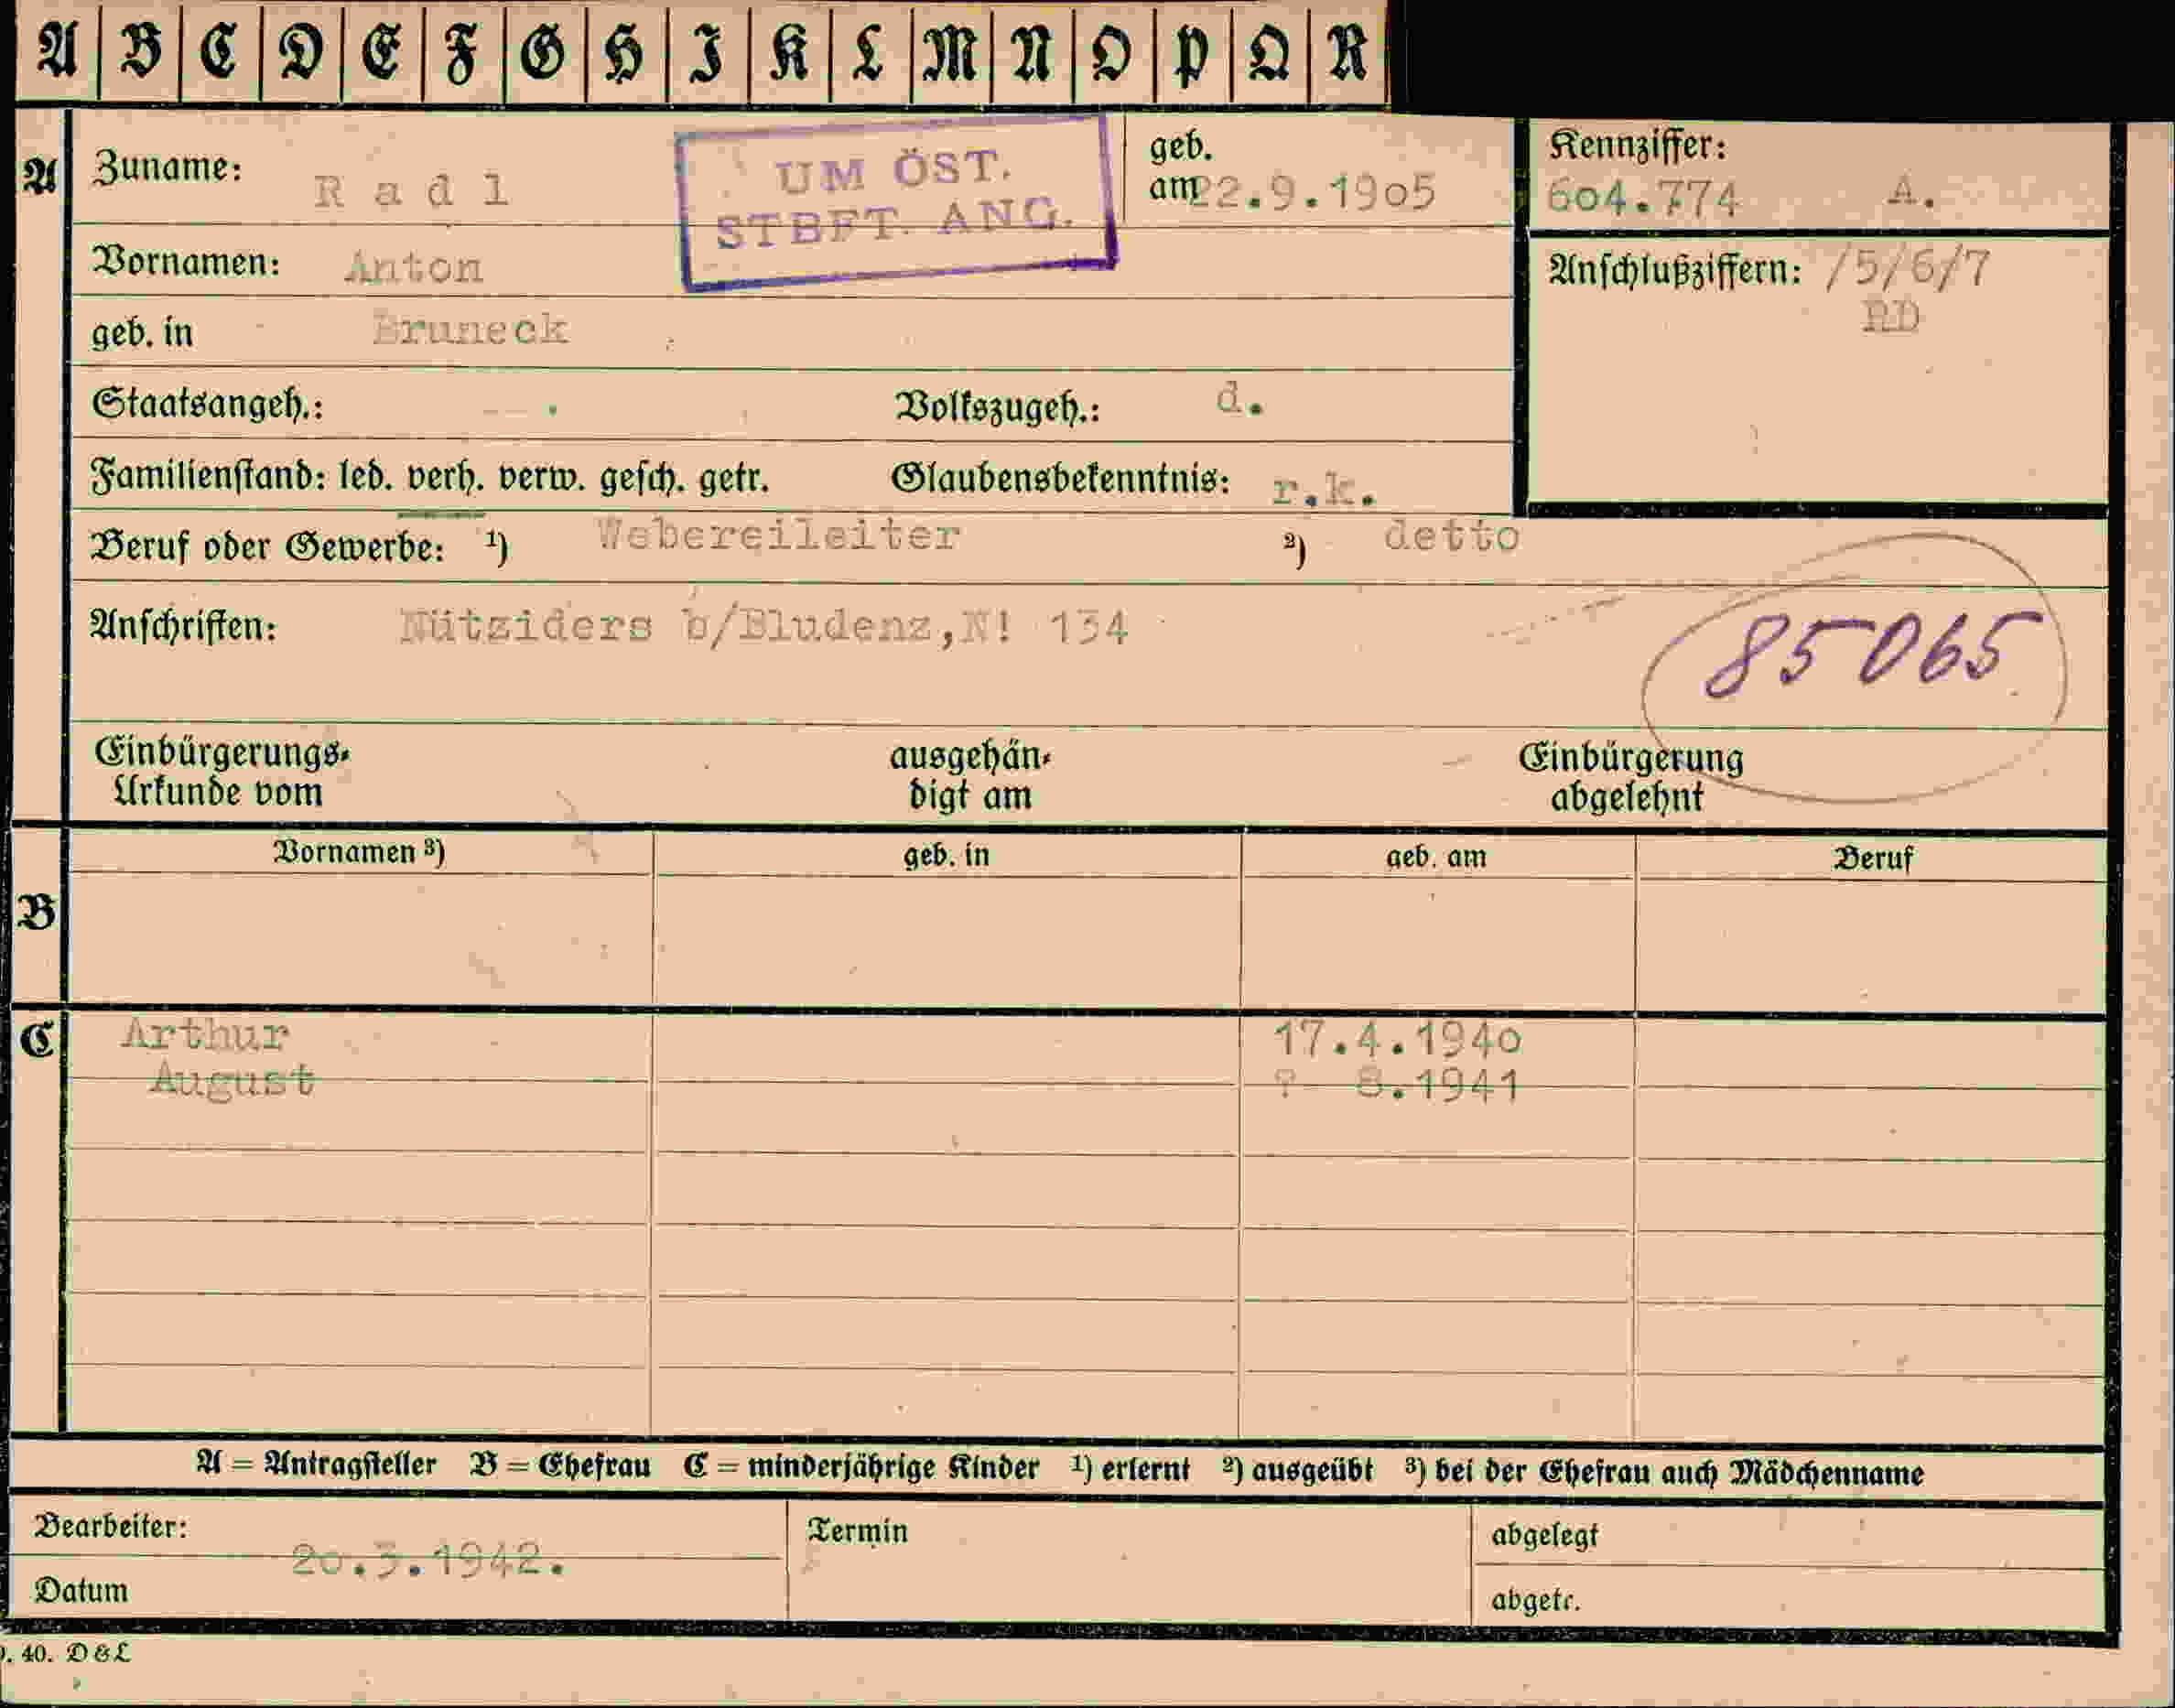 A B C D E F G H I K L M N O P Q R
A Zuname: Radl
UM ÖST.
STBFT. ANG.
geb.
am 22.9.1905
Kennziffer:
604.774 A.
Vornamen: Anton
Anschlußziffern: /5/6/7
RD
geb. in Bruneck
Staatsangeh.: --. Volkszugeh.: d.
Familienstand: led. verh. verw. gesch. getr. Glaubensbekenntnis: r.k.
Beruf oder Gewerbe: ¹) Webereileiter ²) detto
Anschriften: Nütziders b/Bludenz,N! 134
85065
Einbürgerungs-
Urkunde vom
ausgehän-
digt am
Einbürgerung
abgelehnt
Vornamen ³) geb. in geb. am Beruf
B
C Arthur 17.4.1940
August ? 8.1941
A = Antragsteller B = Ehefrau C = minderjährige Kinder ¹) erlernt ²) ausgeübt ³) bei der Ehefrau auch Mädchenname
Bearbeiter: Termin abgelegt
20.3.1942.
Datum abgetr.
. 40. D&L